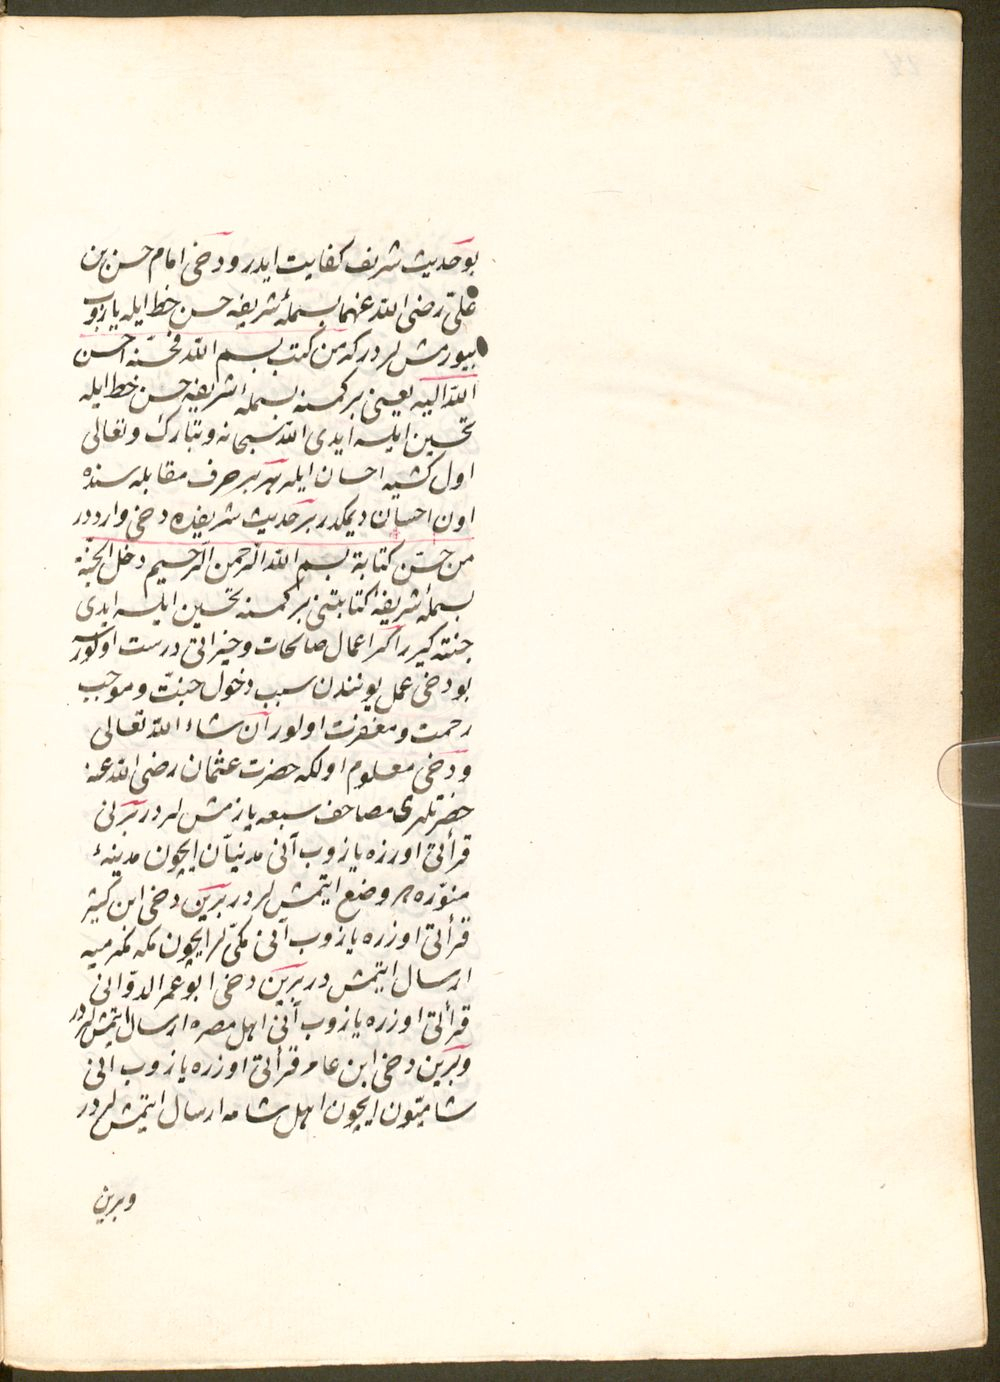 بو حدیث شریف کفایت ایدر و دخی امام حسن بن
علیّ رضی الله عنهما بسملهٔ شریفه حسن خط ایله یازوب
بیورمشلردر که من کتب بسم الله فحسّنه احسن
الله الیه یعنی بر کمسنه بسملهٔ شریفه حسن خط ایله
تحسین ایلسه ایدی الله سبحانه و تبارک و تعالی
اول کشیه احسان ایلر هر بر حرف مقابله سنده
اون احسان دیمکدر بر حدیث شریفده دخی وارددر
من حسّن کتابة بسم الله الرّحمن الرّحیم دخل الجنّة
بسملهٔ شریفهٔ کتابتنی بر کمسنه تحسین ایلسه ایدی
جنته کیرر اکر اعمال صالحات و خیراتی درست اولورسه
بو دخی عمل یوننندن سبب دخول جنّت و موجب
رحمت و مغفرت اولور ان شاء الله تعالی
و دخی معلوم اولکه حضرت عثمان رضی الله عنه
حضرتلری مصاحف سبعه یازمشلردر برنی
قرأتی اوزره یازوب آنی مدنیّان ایچون مدینهٔ
منوّره ده وضع ایتمشلردر برین دخی ابن کثیر
قرأتی اوزره یازوب آنی مکّی لر ایچون مکه مکرمیه
ارسال ایتمش در برین دخی ابو عمر الدوّانی
قرأتی اوزره یازوب آنی اهل مصره ارسال ایتمشلردر
و برین دخی ابن عامر قرأتی اوزره یازوب انی
شامیّون ایچون اهل شامه ارسال ایتمشلردر
و برین